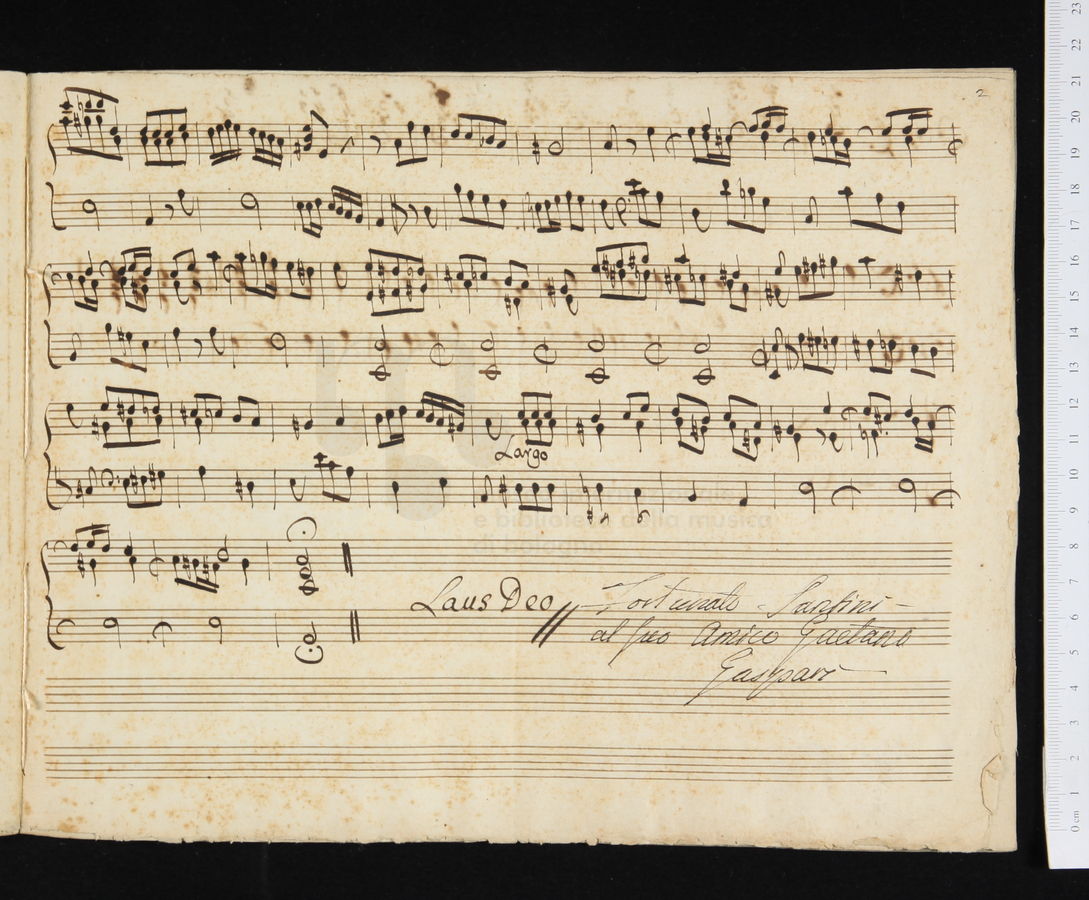 2
Largo
Laus Deo
Fortunato Santini
al suo Amico Gaetano
Gaspari
e biblioteca della musica
di Bologna
23
22
21
20
19
18
17
16
15
14
13
12
11
10
9
8
7
6
5
4
3
2
1
0 cm